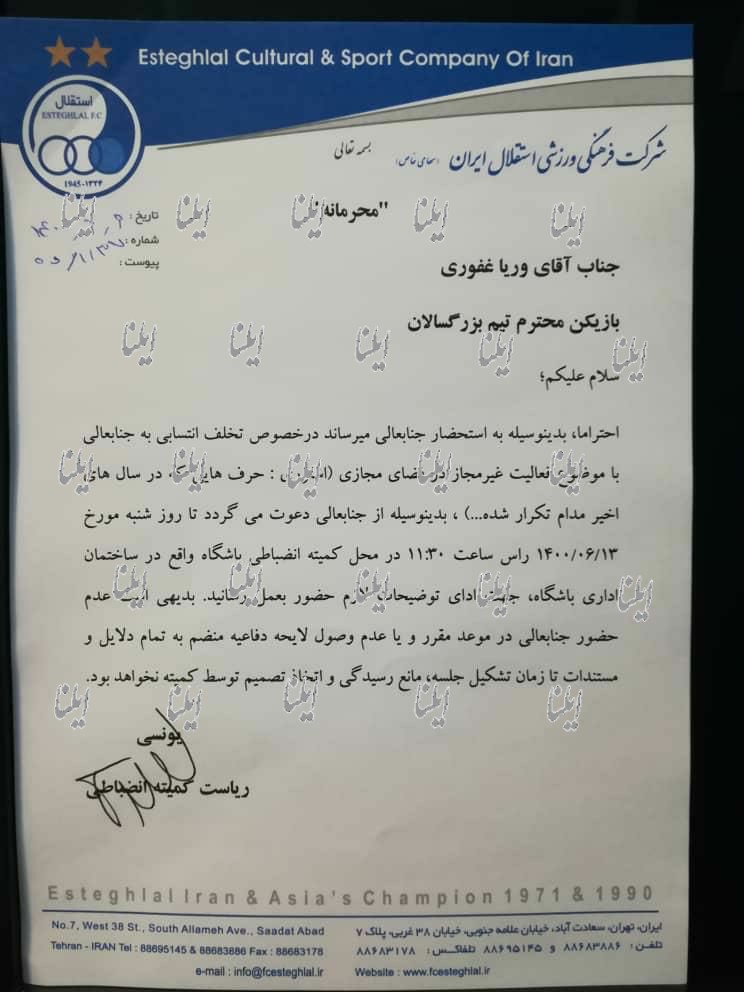 Esteghlal Cultural & Sport Company Of Iran
استقلال
ESTEGHLAL F.C
1945-۱۳۲۴
شرکت فرهنگی ورزشی استقلال ایران (سهامی خاص)
بسمه تعالی
"محرمانه"
تاریخ :
شماره :
پیوست :
جناب آقای وریا غفوری
بازیکن محترم تیم بزرگسالان
سلام علیکم؛
احتراما، بدینوسیله به استحضار جنابعالی میرساند درخصوص تخلف انتسابی به جنابعالی
با موضوع فعالیت غیرمجاز در فضای مجازی ( : حرف هایی که در سال های
اخیر مدام تکرار شده...) ، بدینوسیله از جنابعالی دعوت می گردد تا روز شنبه مورخ
۱۴۰۰/۰۶/۱۳ راس ساعت ۱۱:۳۰ در محل کمیته انضباطی باشگاه واقع در ساختمان
اداری باشگاه، جهت ادای توضیحات لازم حضور بعمل رسانید. بدیهی است عدم
حضور جنابعالی در موعد مقرر و یا عدم وصول لایحه دفاعیه منضم به تمام دلایل و
مستندات تا زمان تشکیل جلسه، مانع رسیدگی و اتخاذ تصمیم توسط کمیته نخواهد بود.
یونسی
ریاست کمیته انضباطی
ایلنا
Esteghlal Iran & Asia's Champion 1971 & 1990
No.7, West 38 St., South Allameh Ave., Saadat Abad
Tehran - IRAN Tel : 88695145 & 88683886 Fax : 88683178
e-mail : info@fcesteghlal.ir
ایران، تهران، سعادت آباد، خیابان علامه جنوبی، خیابان ۳۸ غربی، پلاک ۷
تلفن : ۸۸۶۸۳۸۸۶ و ۸۸۶۹۵۱۴۵ تلفاکس : ۸۸۶۸۳۱۷۸
Website : www.fcesteghlal.ir